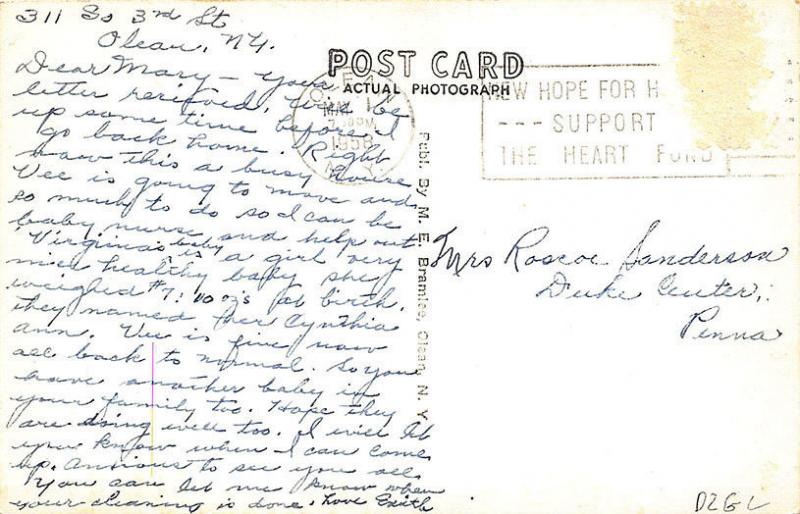 311 So 3rd St
Olean, N.Y.
Dear Mary - Your
letter rerifored, will be
up some time before I
go back home. Right
now this a busy house
Vee is going to move and
so much to do so I can be
baby nurse and help out
Virginia's baby is a girl very
nice healthy baby she
weighed #7:10 oz's at birth.
they named her Cynthia
ann. Vee is fine now
all back to normal. So you
have another baby in
your family too. Hope they
are doing well too. I will let
you know when I can come
up. Anxious to see you all.
You can let me know when
your cleaning is done. Love Edith
POST CARD
ACTUAL PHOTOGRAPH
MAR
PM
1958
N.Y.
NEW HOPE FOR H
--- SUPPORT
THE HEART FUND
Publ. By M. E. Bramlee, Olean, N. Y.
Mrs Roscoe Sanderson
Duke Center,
Penna
D2GL